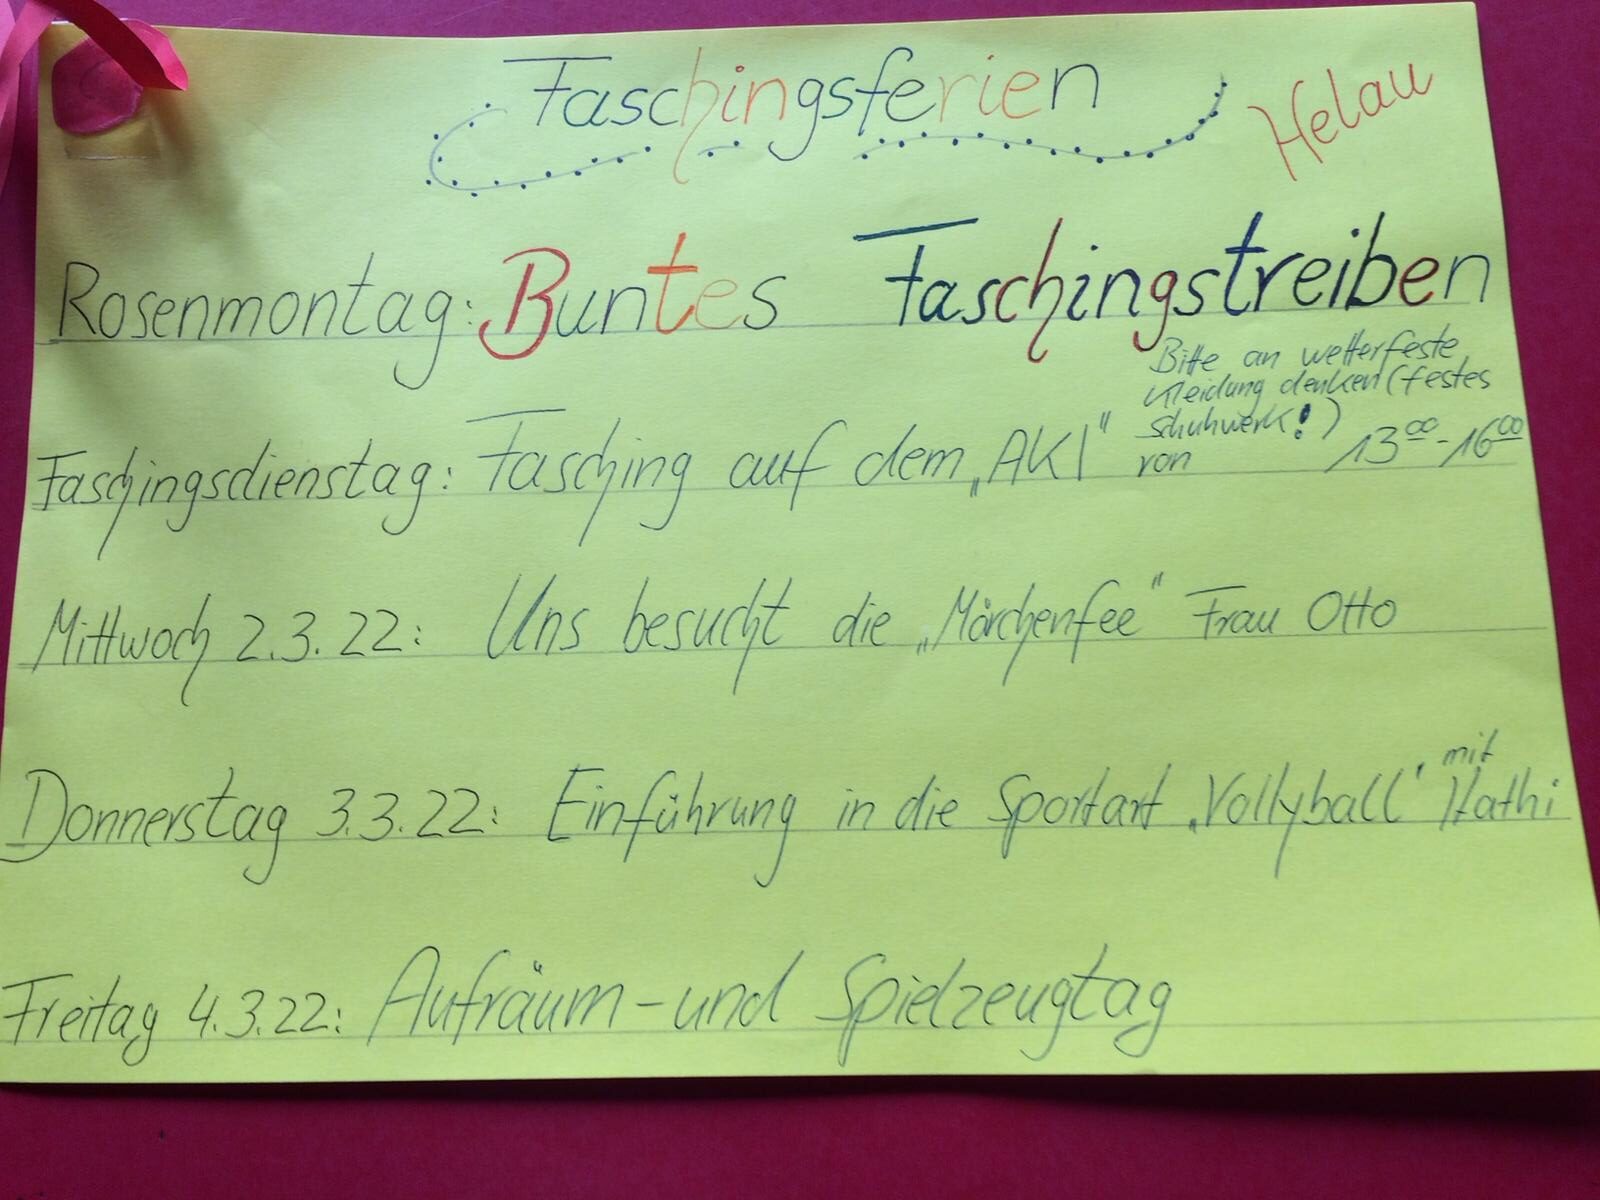 Faschingsferien
Helau
Rosenmontag: Buntes Faschingstreiben
Bitte an wetterfeste
Kleidung denken (festes
Schuhwerk!)
Faschingsdienstag: Fasching auf dem „AKI" von 13⁰⁰-16⁰⁰
Mittwoch 2.3.22: Uns besucht die „Märchenfee" Frau Otto
Donnerstag 3.3.22: Einführung in die Sportart „Vollyball" mit Kathi
Freitag 4.3.22: Aufräum- und Spielzeugtag